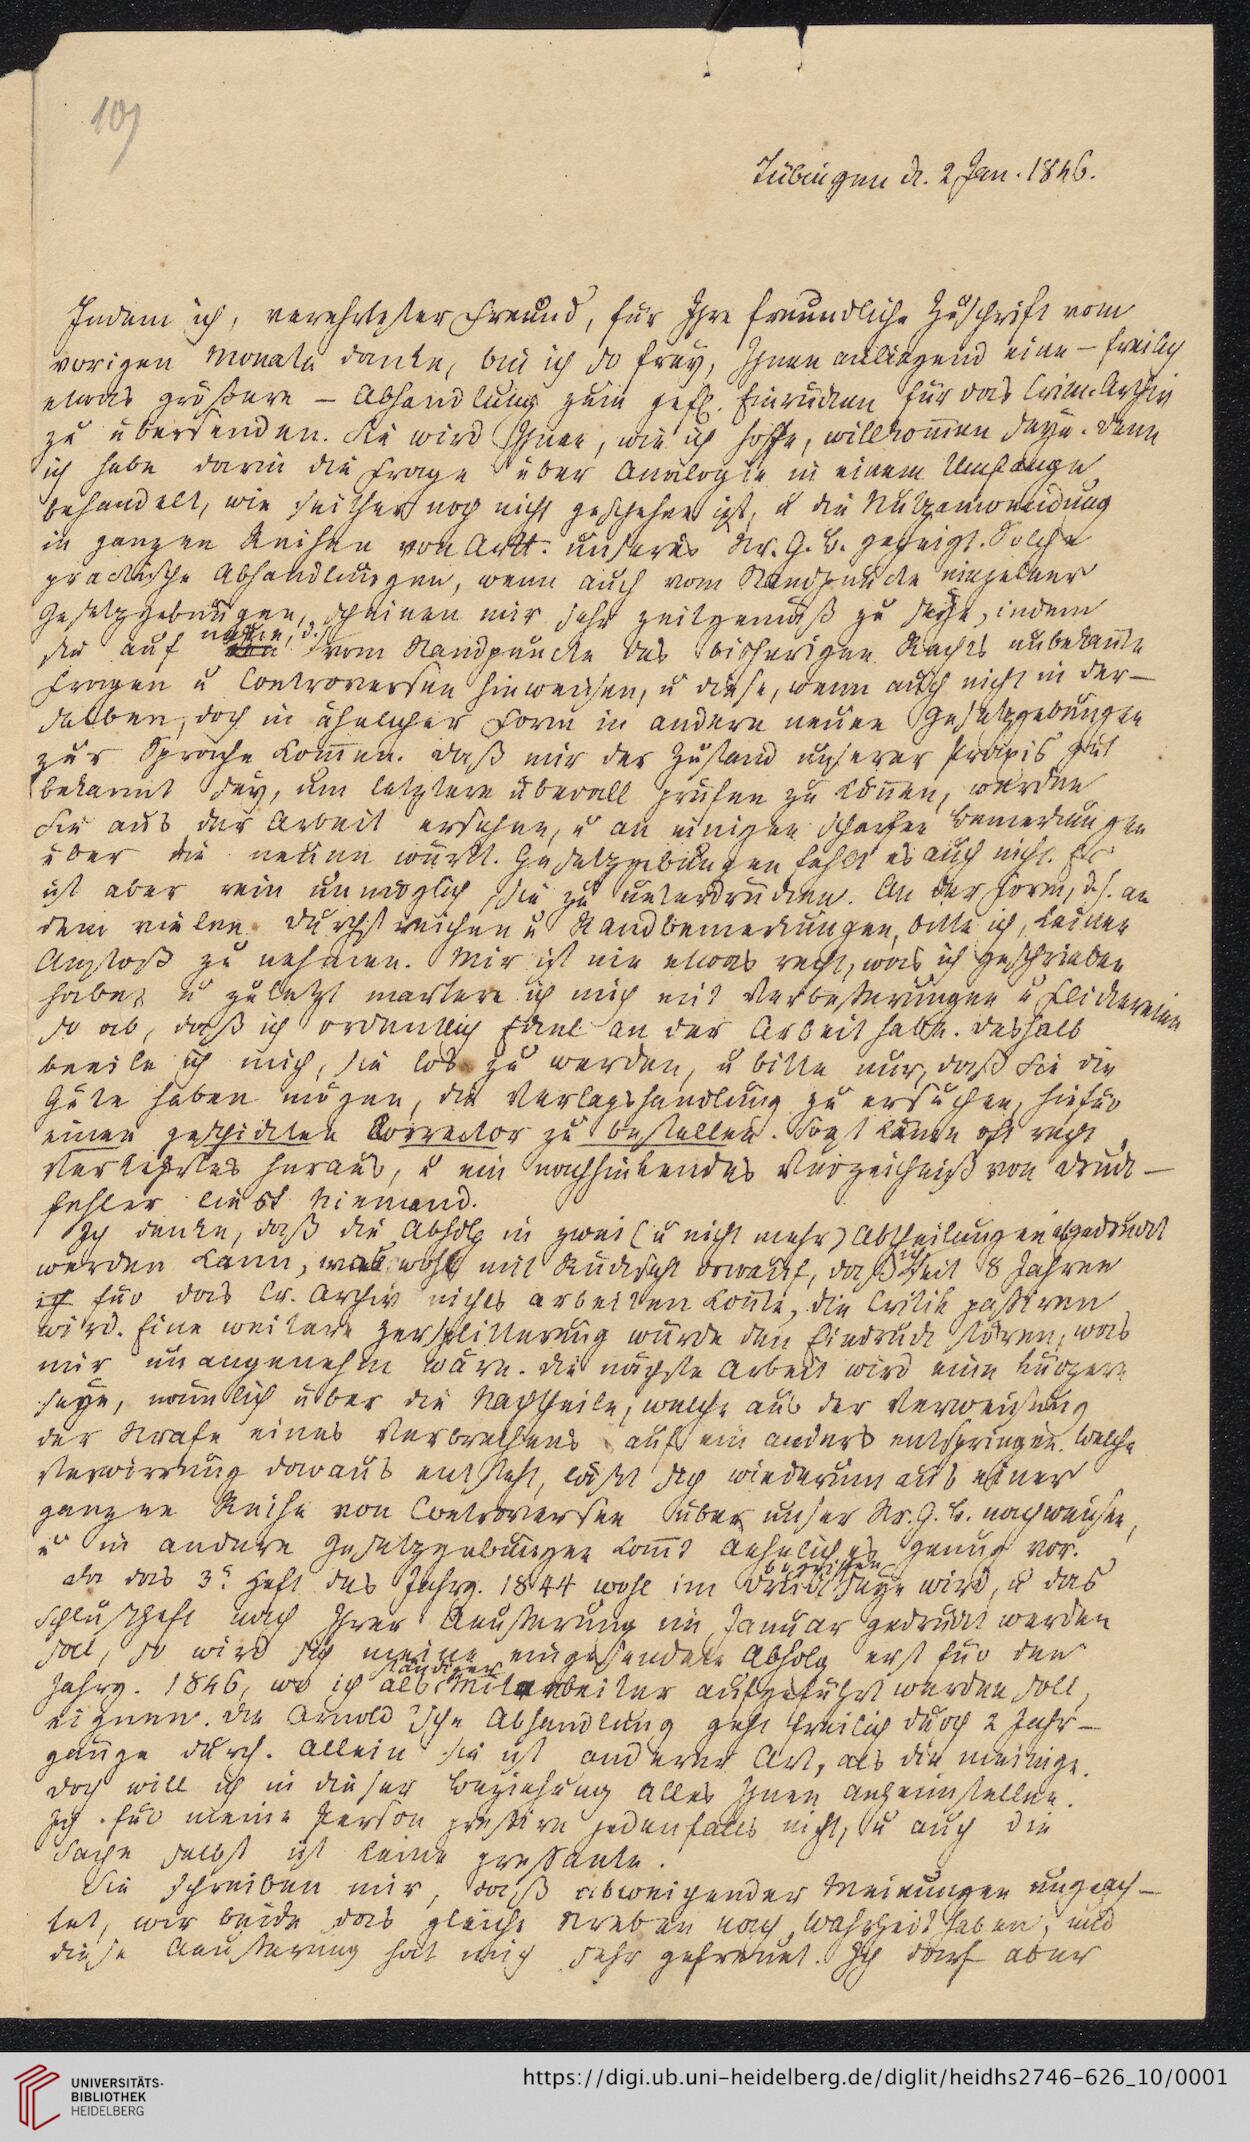 109
Tübingen d. 2 Jan. 1846.
Indem ich, verehrtester Freund, für Ihre freundliche Zuschrift vom
vorigen Monate danke, bin ich so frey, Ihnen anliegend eine – freilich
etwas größere – Abhandlung zum gefl. Einrücken für das Crim. Archiv
zu übersenden. Sie wird Ihnen, wie ich hoffe, willkommen seyn. Denn
ich habe darin die Frage über Analogie in einem Umfange
behandelt, wie seither noch nicht geschehen ist, u die Nutzanwendung
in ganzen Reihen von Artt. unseres Str. G. B. gezeigt. Solche
practische Abhandlungen, wenn auch vom Standpuncte einzelner
Gesetzgebungen, scheinen mir sehr zeitgemäß zu seyn, indem
sie auf neue, d. h. vom Standpuncte des bisherigen Rechts unbekannte
Fragen u Controversen hinweisen, u diese, wenn auch nicht in der-
selben, doch in ähnlicher Form in andern neuen Gesetzgebungen
zur Sprache kommen. Daß mir der Zustand unserer Praxis gut
bekannt sey, um letztere überall prüfen zu können, werden
Sie aus der Arbeit ersehen, u an einigen scharfen Bemerkungen
über die neuen württ. Gesetzgebungen fehlt es auch nicht. Es
ist aber rein unmöglich sie zu unterdrücken. An der Form, d. h. an
dem vielen Durchstreichen u Randbemerkungen, bitte ich, keinen
Anstoß zu nehmen. Mir ist nie etwas recht, was ich geschrieben
habe, u zuletzt martere ich mich mit Verbesserungen u Flickereien
so ab, daß ich ordentlich Ekel an der Arbeit habe. Deshalb
beeile ich mich, sie los zu werden, u bitte nur, daß Sie die
Güte haben mögen, die Verlagshandlung zu ersuchen, hiefür
einen geschickten Corrector zu bestellen. Sonst kommt oft recht
Verkehrtes heraus, u ein nachhinkendes Verzeichniß von Druck-
fehler liest Niemand.
Ich denke, daß die Abhdlg in zwei (u nicht mehr) Abtheilungen abgedruckt
werden kann, was wohl mit Rücksicht darauf, daß ich seit 8 Jahren
ich für das Cr. Archiv nichts arbeiten konnte, die Critik passiren
wird. Eine weitere Zersplitterung würde den Eindruck stören, was
mir unangenehm wäre. Die nächste Arbeit wird eine kürzere
seyn, nämlich über die Nachtheile, welche aus der Verweisung
der Strafe eines Verbrechens auf ein anders entspringen. Welche
Verwirrung daraus entsteht, läßt sich wiederum aus einer
ganzen Reihe von Controversen über unser Str. G. B. nachweisen,
u in andern Gesetzgebungen kommt Aehnliches genug vor.
Da das 3te Heft des Jahrg. 1844 wohl im Druck begriffen seyn wird, u das
Schlußheft nach Ihrer Aeusserung im Januar gedruckt werden
soll, so wird sich meine eingesendete Abhdlg erst für den
Jahrg. 1846, wo ich als ständiger Mitarbeiter aufgeführt werden soll,
eignen. Die Arnold'sche Abhandlung geht freilich durch 2 Jahr-
gänge durch. Allein sie ist anderer Art, als die meinige.
Doch will ich in dieser Beziehung Alles Ihnen anheimstellen.
Ich für meine Person pressire jedenfalls nicht, u auch die
Sache selbst ist keine pressante.
Sie schreiben mir, daß abweichender Meinungen ungeach-
tet, wir beide das gleiche Streben nach Wahrheit haben, und
diese Aeusserung hat mich sehr gefreuet. Ich darf aber
UNIVERSITÄTS-
BIBLIOTHEK
HEIDELBERG
https://digi.ub.uni-heidelberg.de/diglit/heidhs2746-626_10/0001